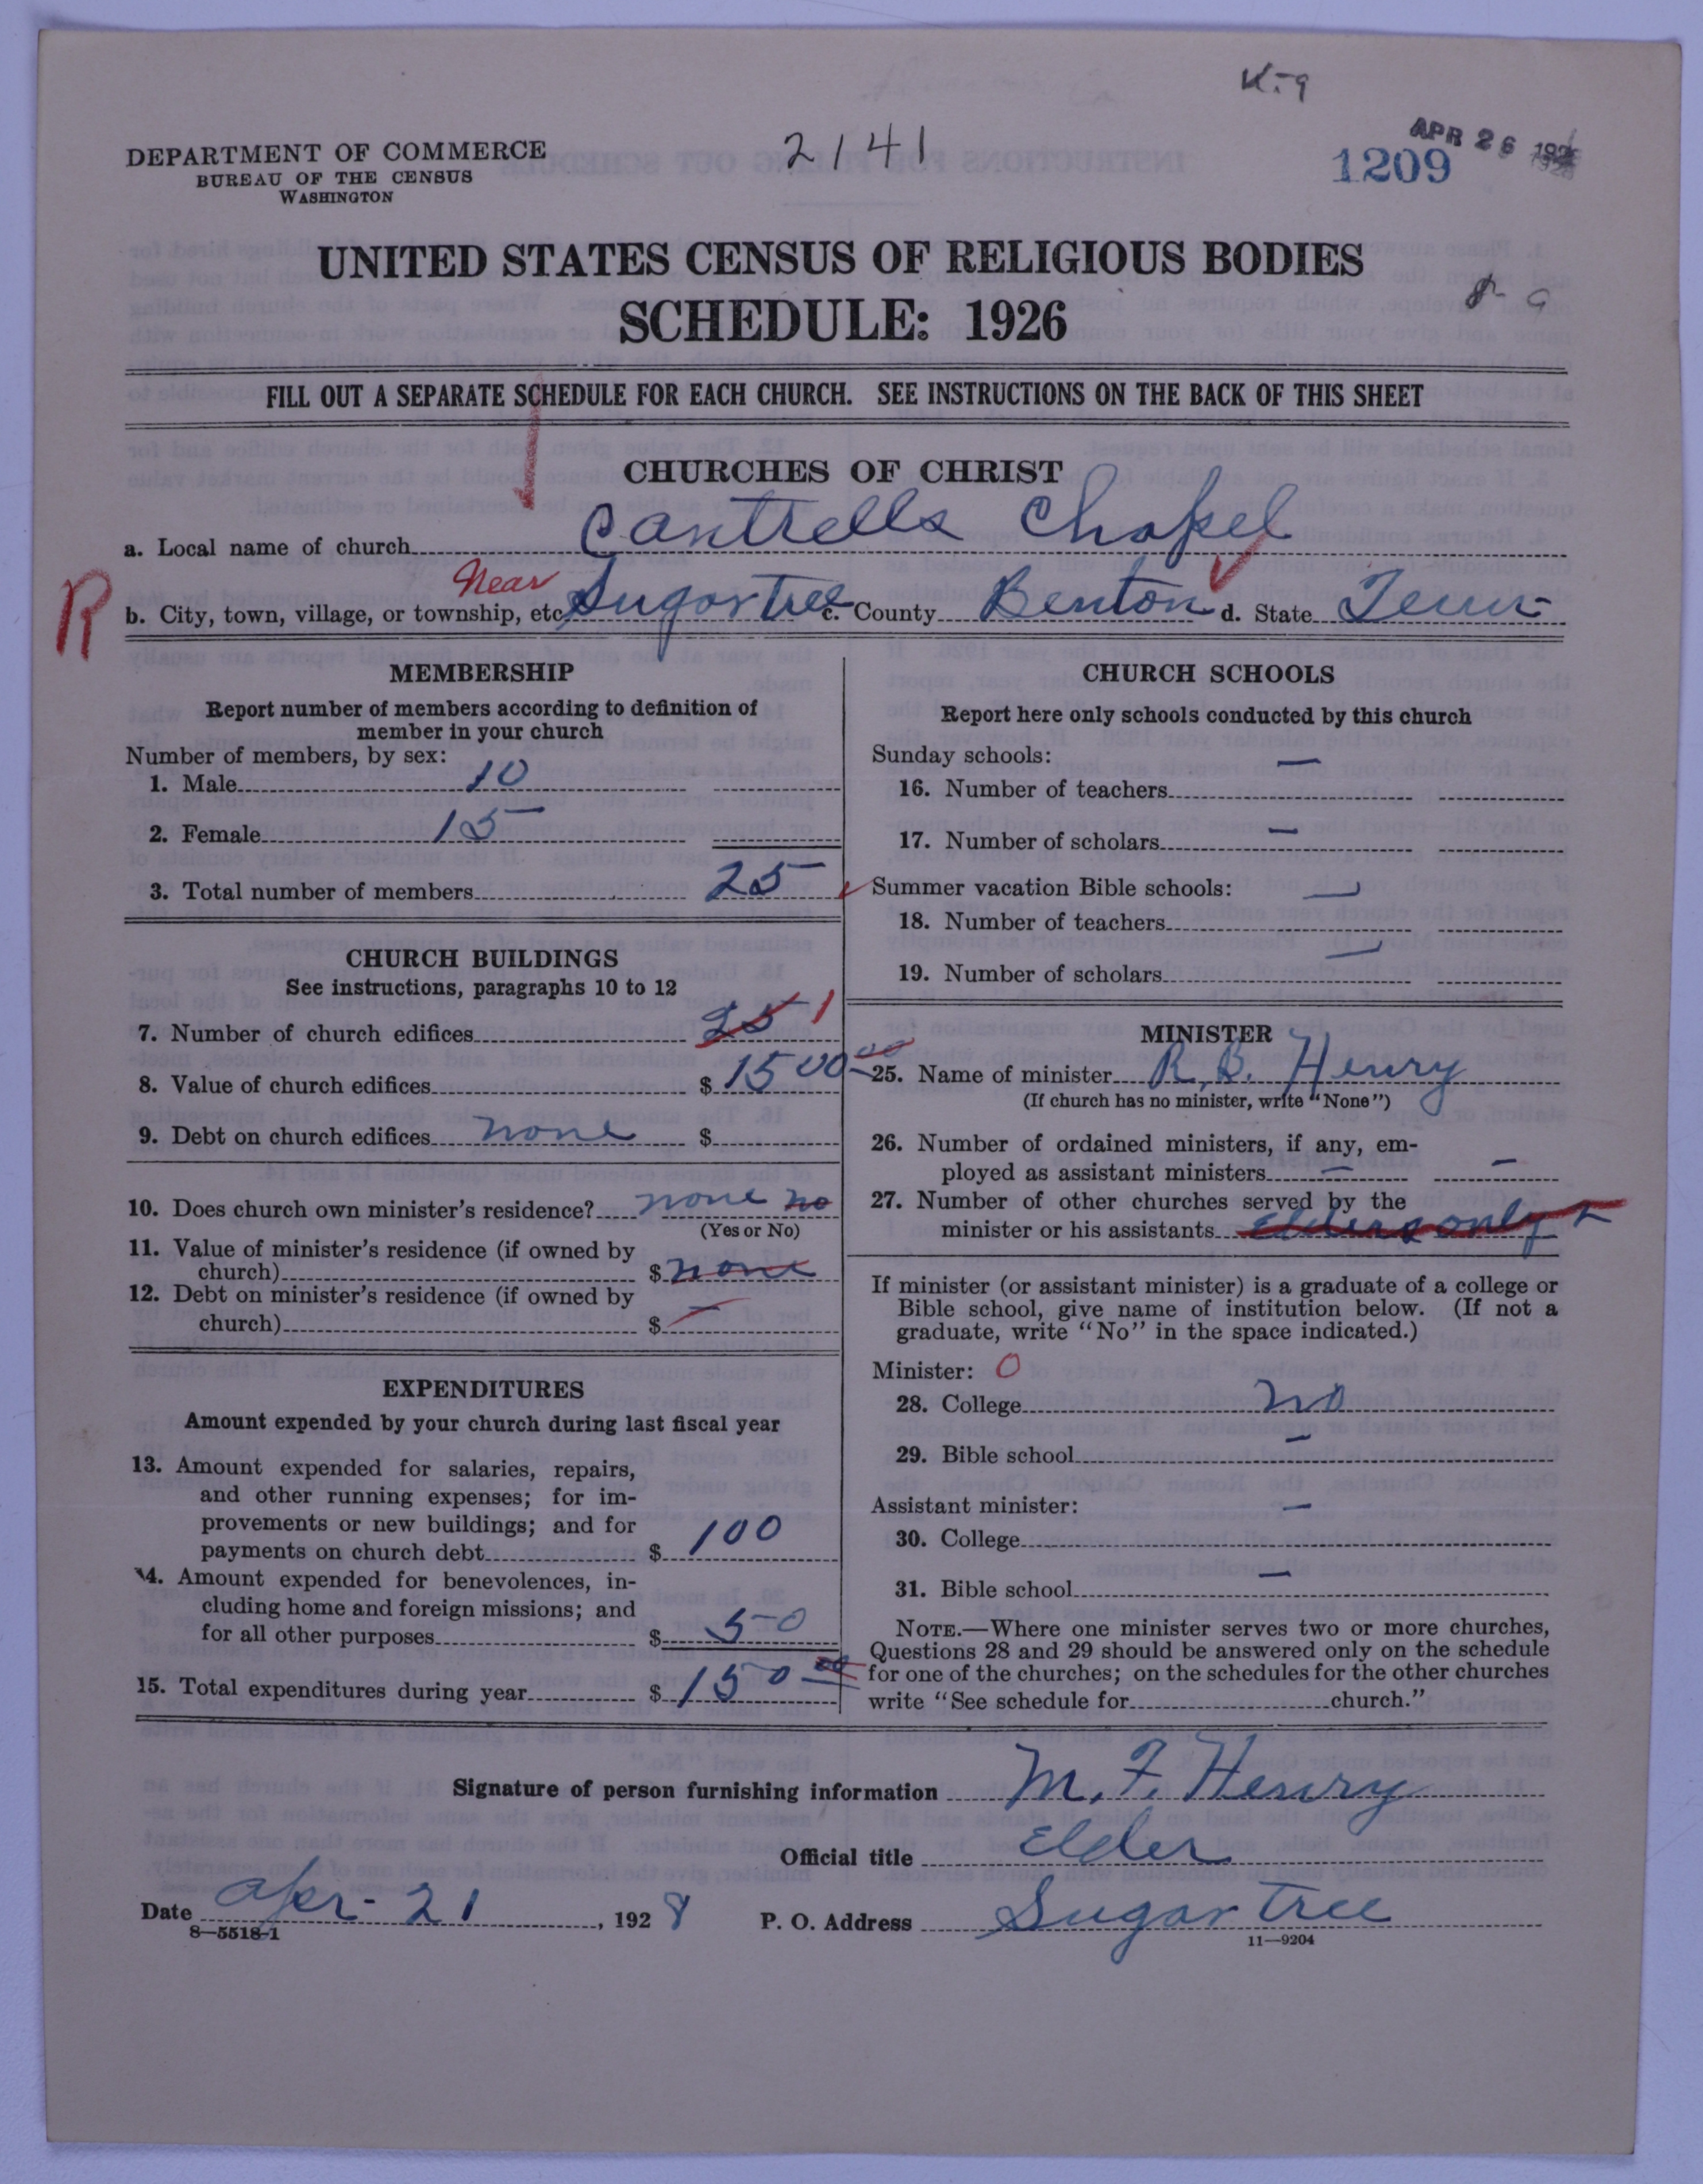 K-9
2141
APR 26 192
1209
DEPARTMENT OF COMMERCE
BUREAU OF THE CENSUS
WASHINGTON
UNITED STATES CENSUS OF RELIGIOUS BODIES
SCHEDULE: 1926
FILL OUT A SEPARATE SCHEDULE FOR EACH CHURCH. SEE INSTRUCTIONS ON THE BACK OF THIS SHEET
CHURCHES OF CHRIST
a. Local name of church Cantrells Chapel
R
Near
b. City, town, village, or township, etc Sugar Tree c. County Benton d. State Tenn
MEMBERSHIP
Report number of members according to definition of
member in your church
Number of members, by sex:
1. Male 10
2. Female 15
3. Total number of members 25
CHURCH BUILDINGS
See instructions, paragraphs 10 to 12
7. Number of church edifices 25 1
8. Value of church edifices $ 1500 00
9. Debt on church edifices none $
10. Does church own minister's residence? none no
(Yes or No)
11. Value of minister's residence (if owned by
church) $ none
12. Debt on minister's residence (if owned by
church) $ —
EXPENDITURES
Amount expended by your church during last fiscal year
13. Amount expended for salaries, repairs,
and other running expenses; for im-
provements or new buildings; and for
payments on church debt $ 100
14. Amount expended for benevolences, in-
cluding home and foreign missions; and
for all other purposes $ 50
15. Total expenditures during year $ 150 00
CHURCH SCHOOLS
Report here only schools conducted by this church
Sunday schools: —
16. Number of teachers
17. Number of scholars —
Summer vacation Bible schools: —
18. Number of teachers
19. Number of scholars —
MINISTER
25. Name of minister R. B. Henry
(If church has no minister, write "None")
26. Number of ordained ministers, if any, em-
ployed as assistant ministers — —
27. Number of other churches served by the
minister or his assistants Elders only
If minister (or assistant minister) is a graduate of a college or
Bible school, give name of institution below. (If not a
graduate, write "No" in the space indicated.)
Minister: O
28. College no
29. Bible school —
Assistant minister: —
30. College
31. Bible school —
NOTE.—Where one minister serves two or more churches,
Questions 28 and 29 should be answered only on the schedule
for one of the churches; on the schedules for the other churches
write "See schedule for church."
Signature of person furnishing information M. F. Henry
Official title Elder
Date Apr- 21, 1928 P. O. Address Sugar Tree
8—5518-1
11—9204